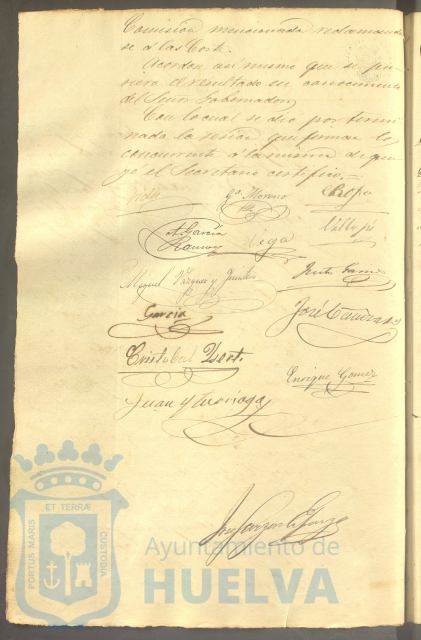 Comision mencionada reclamando
se á las Cort.
Acordar asi mismo que se pu
siera el resultado en conocimiento
del Señor Gobernador,
Con lo cual se dio por termi
nada la sesion que firman los
concurrentes á la misma de que
yo el Secretario certifico.=
Gª Moreno
A. García
Ramos
Vega
Vallejo
Miguel Vazquez y
García
José
Cristobal
Enrique Gomez
Juan
PORTUS MARIS
ET TERRÆ
CUSTODIA
Ayuntamiento de
HUELVA